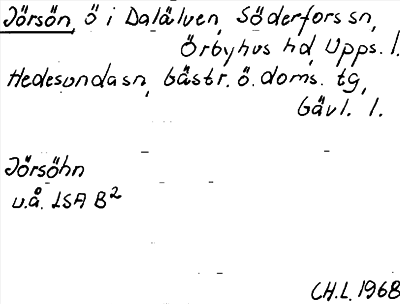 Jörsön, ö i Dalälven, Söderfors sn,
Örbyhus hd, Upps. l.
Hedesunda sn, Gästr. ö. doms. tg,
Gävl. l.
Jörsöhn
u.å. LSA B²
CH.L. 1968